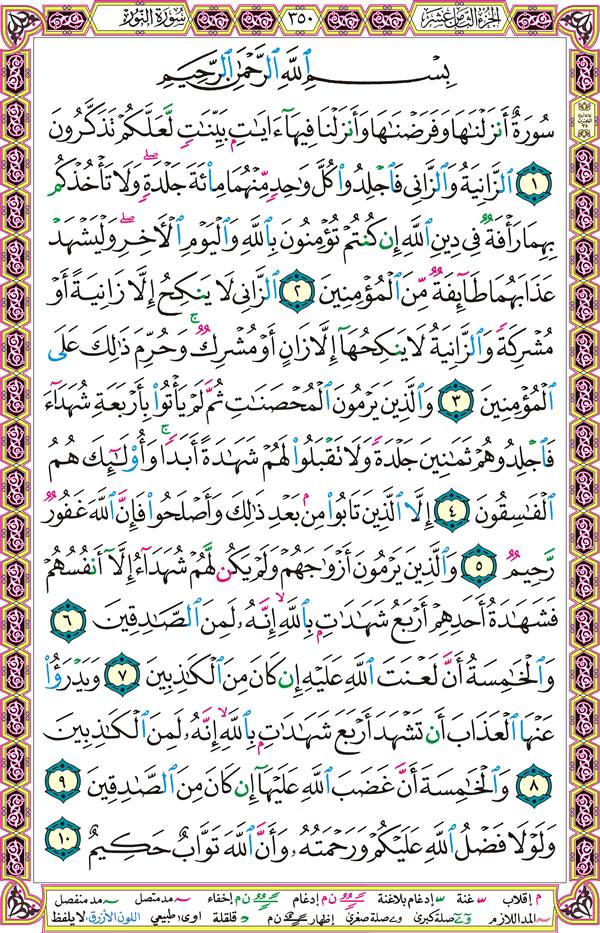 الجزء الثامن عشر ٣٥٠ سورة النور
بِسْمِ اللَّهِ الرَّحْمَٰنِ الرَّحِيمِ
سُورَةٌ أَنزَلْنَٰهَا وَفَرَضْنَٰهَا وَأَنزَلْنَا فِيهَآ ءَايَٰتٍۭ بَيِّنَٰتٍ لَّعَلَّكُمْ تَذَكَّرُونَ
١ الزَّانِيَةُ وَالزَّانِى فَاجْلِدُوا۟ كُلَّ وَٰحِدٍ مِّنْهُمَا مِا۟ئَةَ جَلْدَةٍ ۖ وَلَا تَأْخُذْكُم
بِهِمَا رَأْفَةٌ فِى دِينِ اللَّهِ إِن كُنتُمْ تُؤْمِنُونَ بِاللَّهِ وَالْيَوْمِ الْأَخِرِ ۖ وَلْيَشْهَدْ
عَذَابَهُمَا طَآئِفَةٌ مِّنَ الْمُؤْمِنِينَ ٢ الزَّانِى لَا يَنكِحُ إِلَّا زَانِيَةً أَوْ
مُشْرِكَةً وَالزَّانِيَةُ لَا يَنكِحُهَآ إِلَّا زَانٍ أَوْ مُشْرِكٌ ۚ وَحُرِّمَ ذَٰلِكَ عَلَى
الْمُؤْمِنِينَ ٣ وَالَّذِينَ يَرْمُونَ الْمُحْصَنَٰتِ ثُمَّ لَمْ يَأْتُوا۟ بِأَرْبَعَةِ شُهَدَآءَ
فَاجْلِدُوهُمْ ثَمَٰنِينَ جَلْدَةً وَلَا تَقْبَلُوا۟ لَهُمْ شَهَٰدَةً أَبَدًا ۚ وَأُو۟لَٰٓئِكَ هُمُ
الْفَٰسِقُونَ ٤ إِلَّا الَّذِينَ تَابُوا۟ مِنۢ بَعْدِ ذَٰلِكَ وَأَصْلَحُوا۟ فَإِنَّ اللَّهَ غَفُورٌ
رَّحِيمٌ ٥ وَالَّذِينَ يَرْمُونَ أَزْوَٰجَهُمْ وَلَمْ يَكُن لَّهُمْ شُهَدَآءُ إِلَّآ أَنفُسُهُمْ
فَشَهَٰدَةُ أَحَدِهِمْ أَرْبَعُ شَهَٰدَٰتٍۭ بِاللَّهِ ۙ إِنَّهُۥ لَمِنَ الصَّٰدِقِينَ ٦
وَالْخَٰمِسَةُ أَنَّ لَعْنَتَ اللَّهِ عَلَيْهِ إِن كَانَ مِنَ الْكَٰذِبِينَ ٧ وَيَدْرَؤُا۟
عَنْهَا الْعَذَابَ أَن تَشْهَدَ أَرْبَعَ شَهَٰدَٰتٍۭ بِاللَّهِ ۙ إِنَّهُۥ لَمِنَ الْكَٰذِبِينَ
٨ وَالْخَٰمِسَةَ أَنَّ غَضَبَ اللَّهِ عَلَيْهَآ إِن كَانَ مِنَ الصَّٰدِقِينَ ٩
وَلَوْلَا فَضْلُ اللَّهِ عَلَيْكُمْ وَرَحْمَتُهُۥ وَأَنَّ اللَّهَ تَوَّابٌ حَكِيمٌ ١٠
م إقلاب غنة إدغام بلاغنة ن م إدغام ن م إخفاء مد متصل مد منفصل
المد اللازم صلة كبرى صلة صغرى إظهار ن م قلقلة اوى: طبيعي اللون الأزرق: لا يلفظ